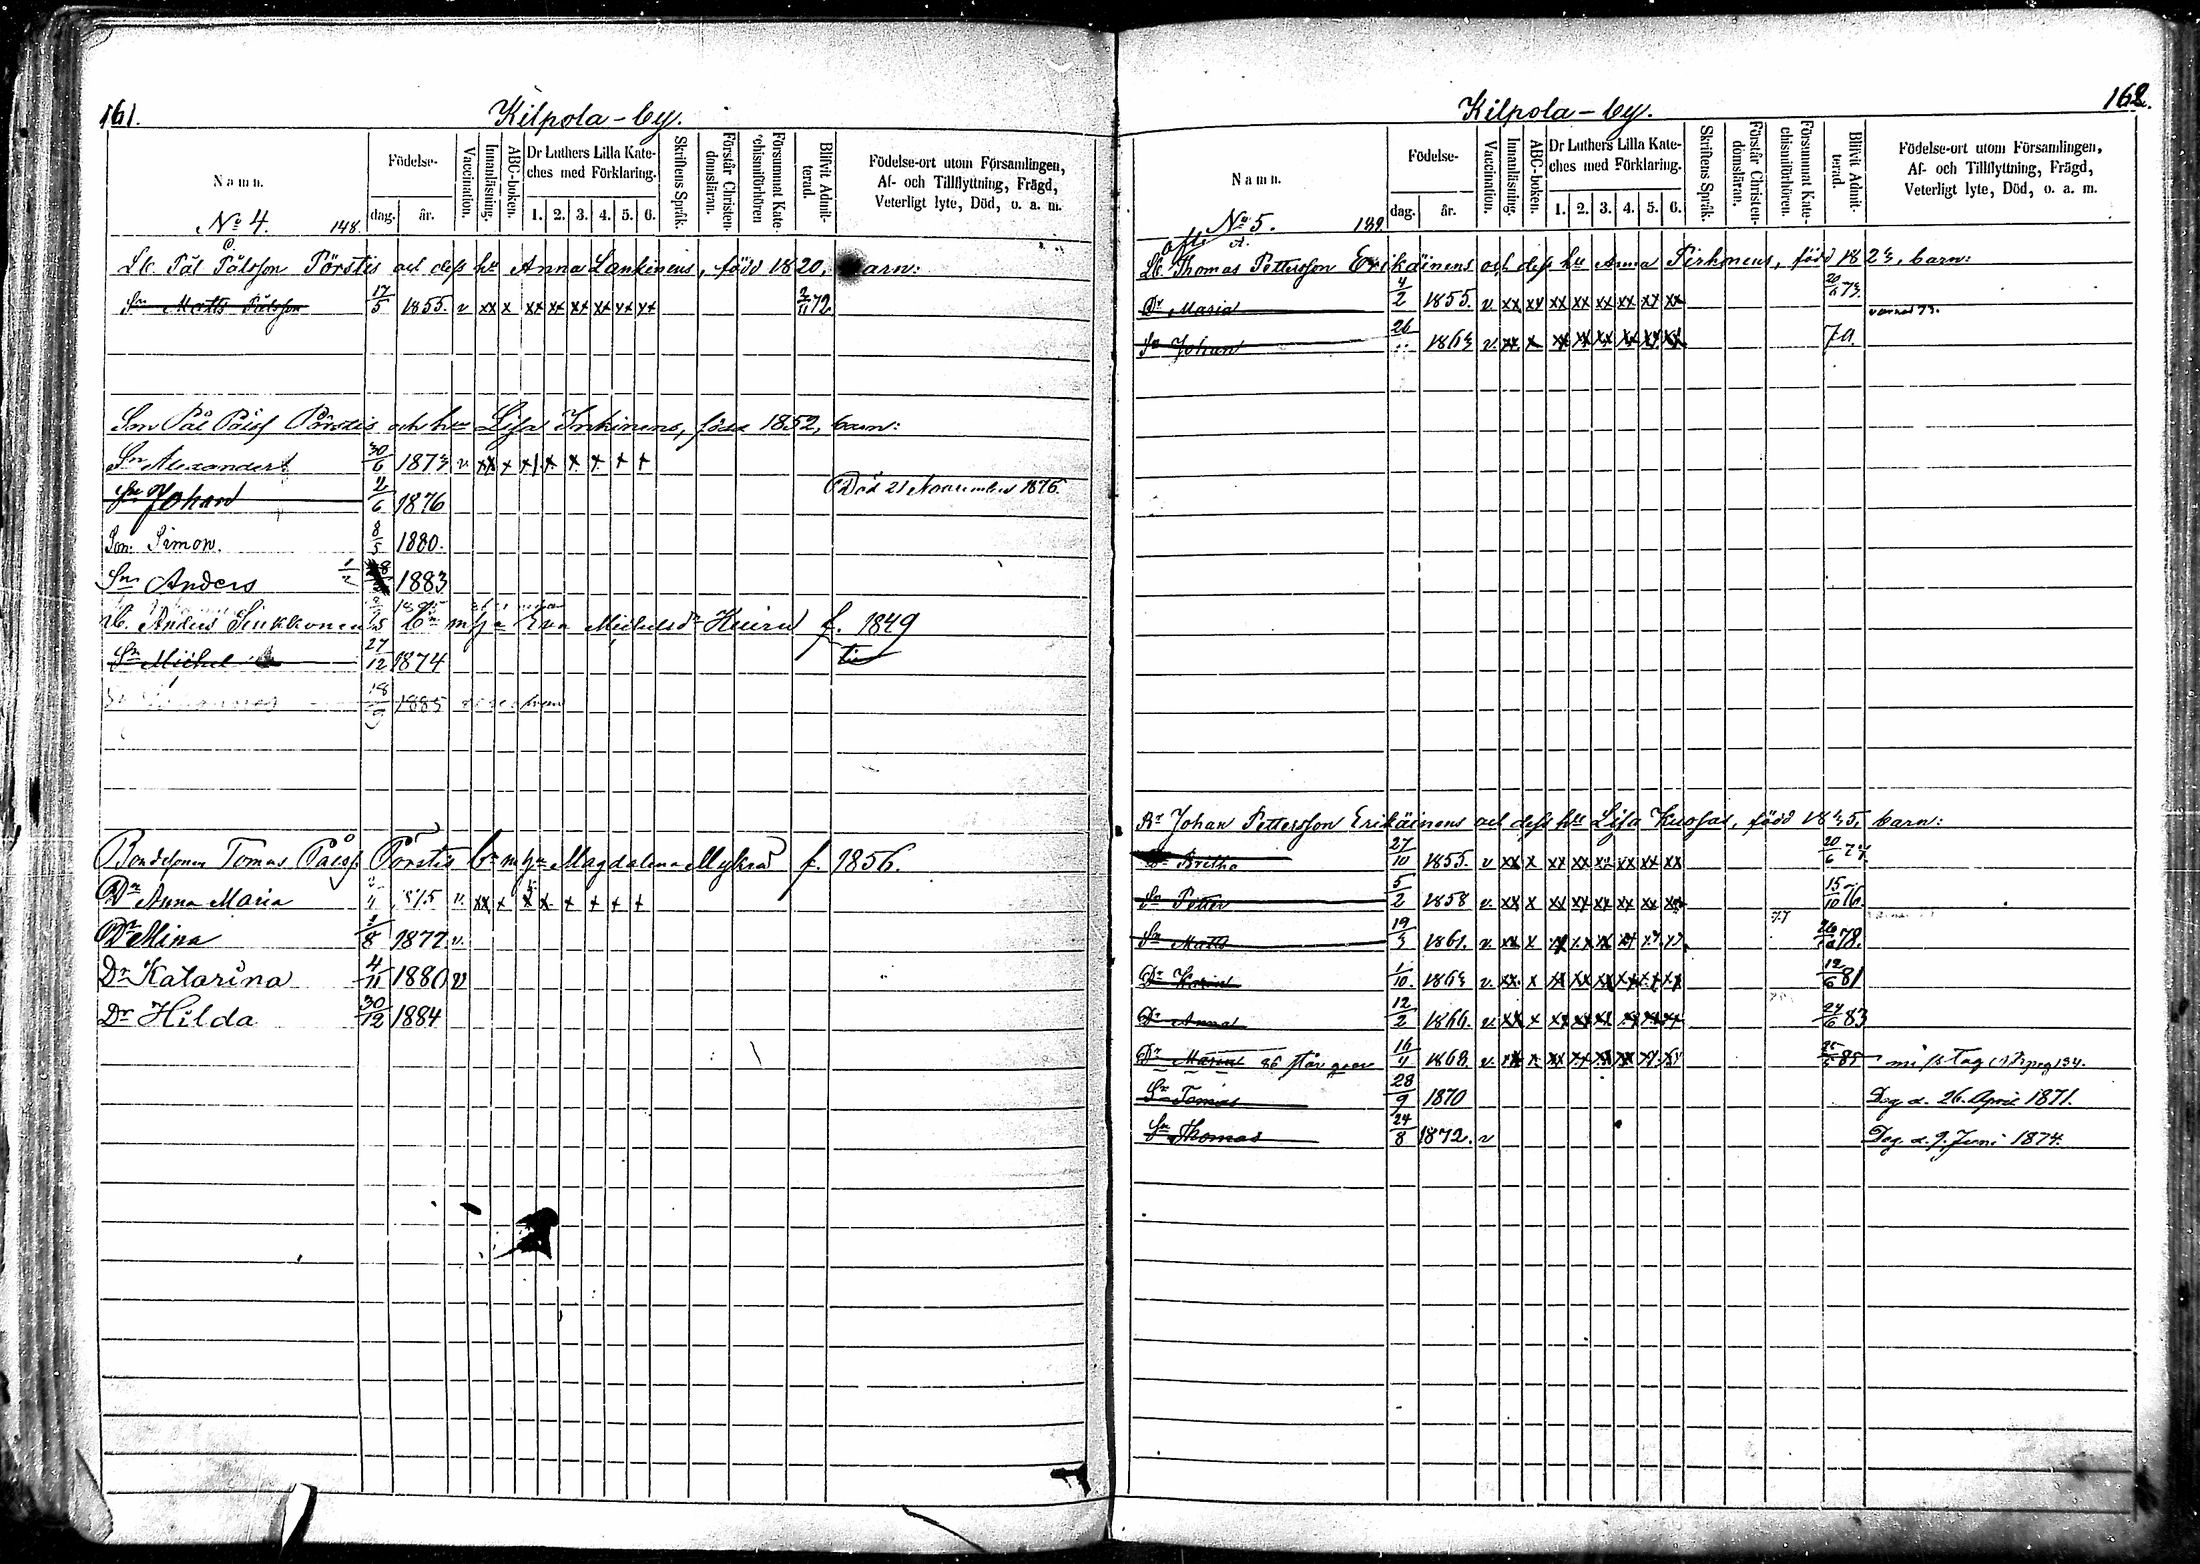 161.
Kilpola-by.
Namn.
Födelse-
dag.
år.
Vaccination.
Innanläsning.
ABC-boken.
Dr Luthers Lilla Kate-
ches med Förklaring.
1. 2. 3. 4. 5. 6.
Skriftens Språk.
Förstår Christen-
domsläran.
Försummat Kate-
chismiförhören
Blifvit Admit-
terad.
Födelse-ort utom Församlingen,
Af- och Tillflyttning, Frägd,
Veterligt lyte, Död, o. a. m.
No 4. 148.
Pål Pålsson Pörstis och dess hu Anna Lankinens, född 1820, barn:
Sn Matts Pålsson 17/5 1855. v xx x xx xx xx xx xx xx 72
Son Pål Pålss Pörstis och hu Lisa Inkinens, född 1852, barn:
Sn Alexander 30/6 1873 v xx x x x x x x x
Sn Johan 1876 Död 21 November 1876.
Son Simon. 8/5 1880.
Sn Anders 1/2 1883
Anders Sinkkonen Eva Michelsdr Kuiru f. 1849
Sn Michel 27/12 1874
18/9 1885
Bondesonen Tomas Pålss Pörstis Magdalena Mykrä f. 1856.
Dr Anna Maria 1875 v. xx x x x x x x x
Dr Mina 1/8 1877 v.
Dr Katarina 4/11 1880 v
Dr Hilda 30/12 1884
162.
Kilpola-by.
Namn.
Födelse-
dag.
år.
Vaccination.
Innanläsning.
ABC-boken.
Dr Luthers Lilla Kate-
ches med Förklaring.
1. 2. 3. 4. 5. 6.
Skriftens Språk.
Förstår Christen-
domsläran.
Försummat Kate-
chismiförhören.
Blifvit Admit-
terad.
Födelse-ort utom Församlingen,
Af- och Tillflyttning, Frägd,
Veterligt lyte, Död, o. a. m.
No 5.
Thomas Pettersson Erikäinens och dess hu Anna Pirhonens, född 1823, barn:
Dr Maria 4/2 1855. v. xx xx xx xx xx xx xx xx 73.
Sn Johan 26 1863 v. xx x xx xx xx xx xx xx
Johan Pettersson Erikäinens och dess hu Lisa Kuosas, född barn:
Dr Bretha 27/10 1855. v xx x xx xx xx xx xx xx 20/6
Sn Petter 5/2 1858 v. xx x xx xx xx xx xx xx 15/10 76.
Sn Matts 19/3 1861. v. xx x xx xx xx xx xx xx 78.
Dr 1/10. 1863 v. xx x xx xx xx xx xx xx 12/6 81
Dr Anna 12/2 1866. v. xx x xx xx xx xx xx xx 24/6 83
Dr Maria 16/4 1868. v. xx x xx xx xx xx xx xx 85
Sn Tomas 28/9 1870 Dog d. 26. April 1871.
Sn Thomas 24/8 1872. v Dog d. 9. Juni 1874.